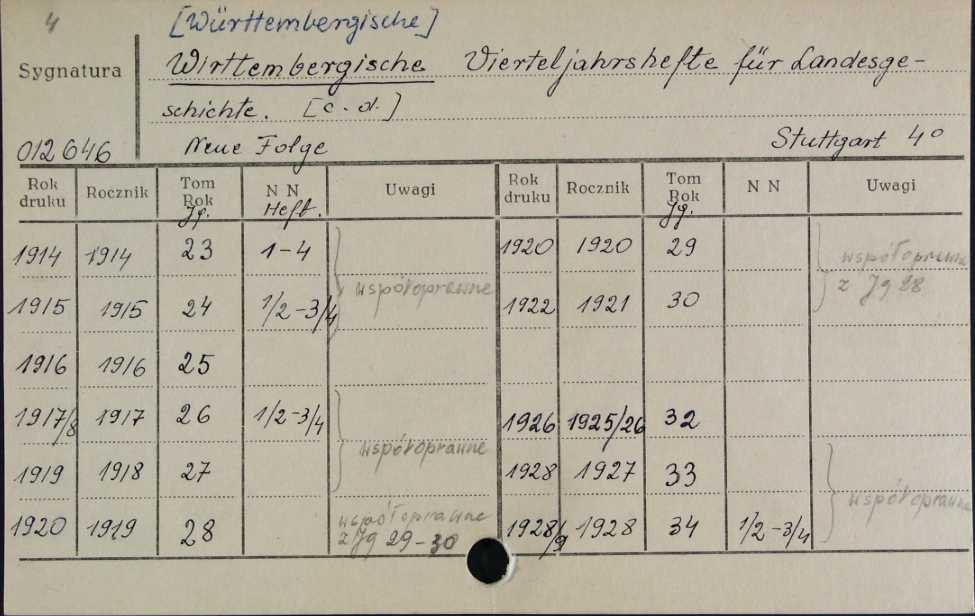 4
[Württembergische]
Sygnatura Wirttembergische Vierteljahrshefte für Landesge-
schichte. [c.d.]
012646 Neue Folge Stuttgart 4°
Rok druku Rocznik Tom Rok Jg. N N Heft. Uwagi Rok druku Rocznik Tom Rok Jg. N N Uwagi
1914 1914 23 1-4 współoprawne 1920 1920 29 współoprawne z Jg 28
1915 1915 24 1/2-3/4 1922 1921 30
1916 1916 25
1917/8 1917 26 1/2-3/4 współoprawne 1926 1925/26 32
1919 1918 27 1928 1927 33 współoprawne
1920 1919 28 współoprawne z Jg 29-30 1928/9 1928 34 1/2-3/4